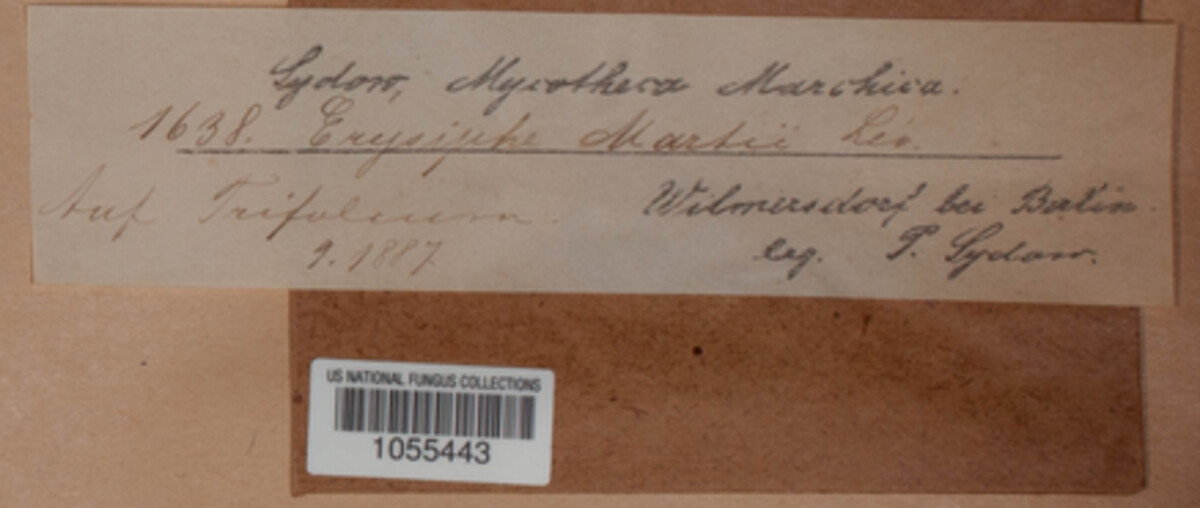 Sydow, Mycotheca Marchica.
1638. Erysiphe Martii Lév.
Auf Trifolium.
9. 1887
Wilmersdorf bei Berlin.
leg. P. Sydow.
US NATIONAL FUNGUS COLLECTIONS
1055443